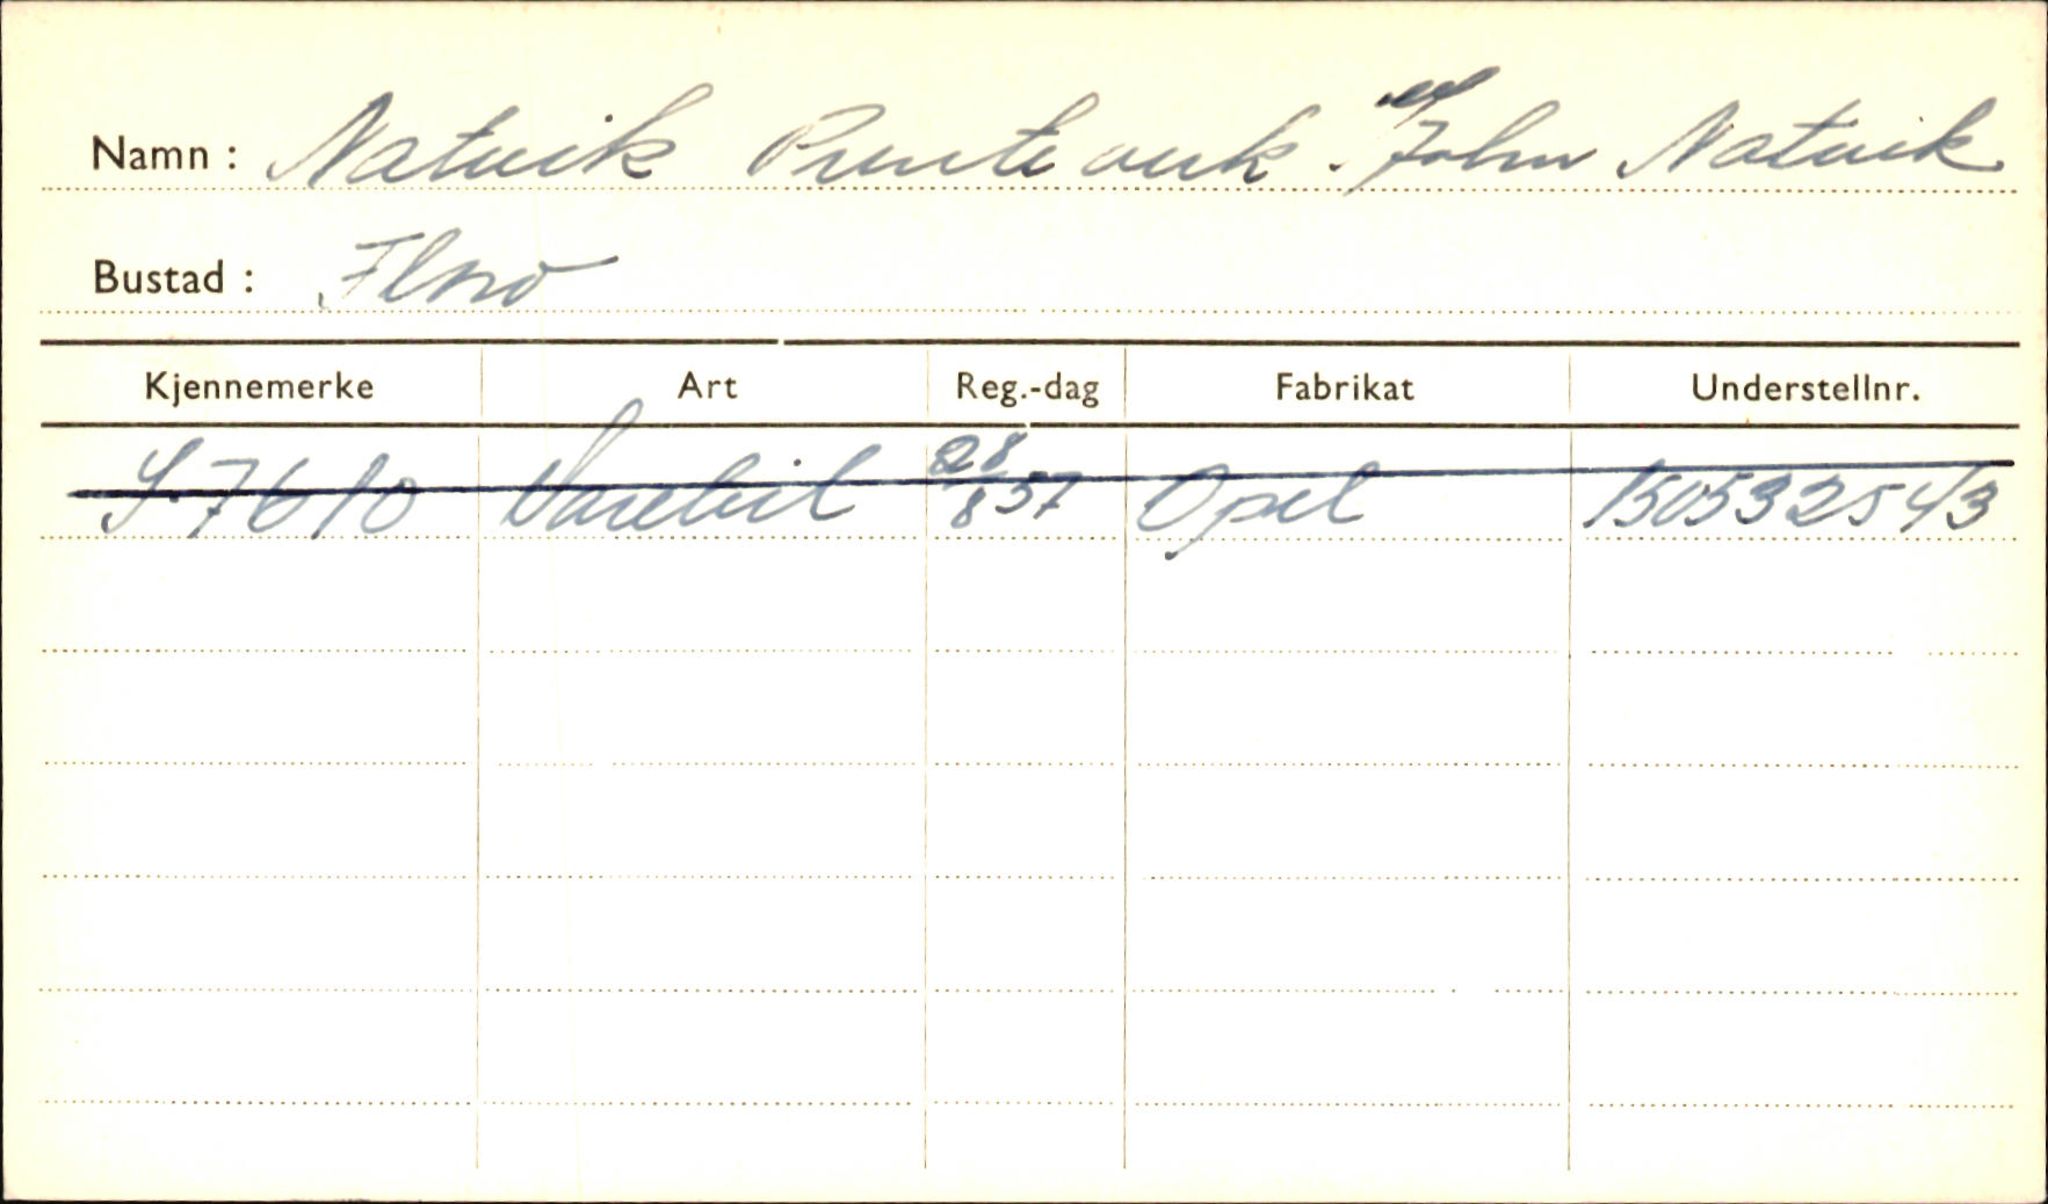 Namn : Natvik Prenteverk v/ John Natvik
Bustad : Florø
Kjennemerke Art Reg.-dag Fabrikat Understellnr.
S-7610 Varebil 28/8 57 Opel 150532543